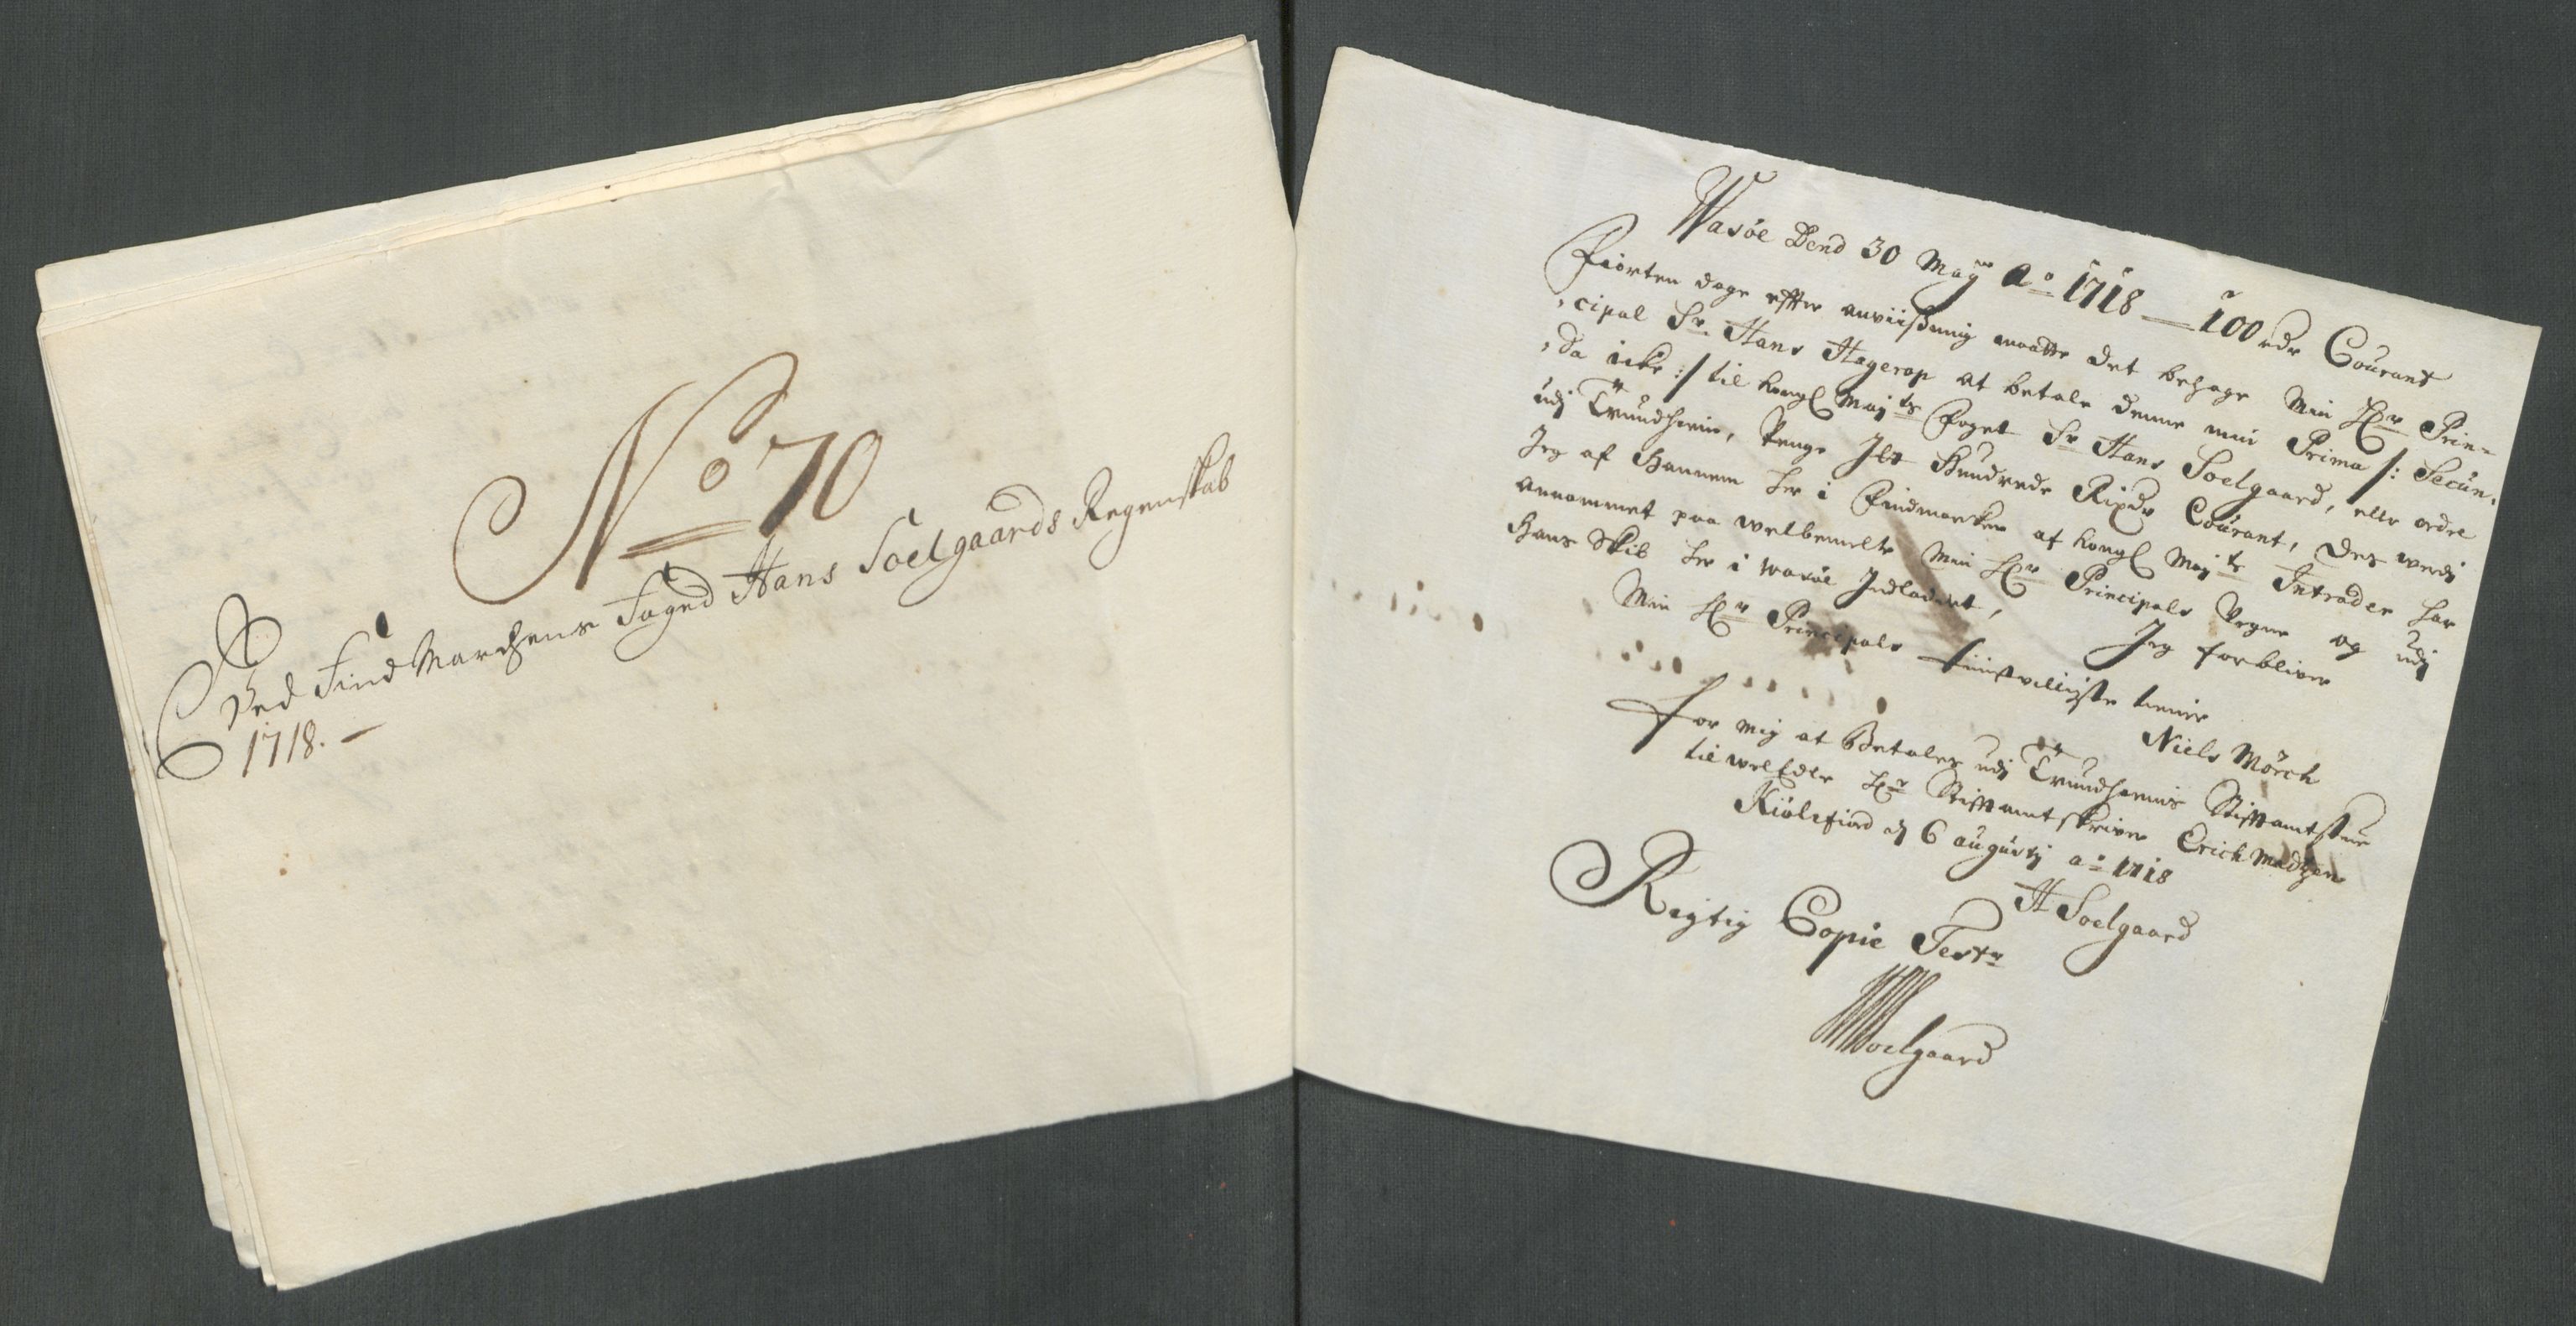 No 70
Ved Find Marchens Foged Hans Soelgaards Regenskab
1718. –
Wasöe Dend 30 Maÿ Ao 1718 — 100 rdr Courant
Fiorten dage efter anviisning maatte det behage Min Hr Prin-
cipal Sr. Hans Hagerop at betale denne min Prima /: Secun,
,da icke :/ til Kongl Maÿts Foget Sr Hans Soelgaard, eller ordre
udj Trundhiem, Penge Jtt Hundrede Rixdr Courant, des werdj
Jeg af Hannem her i Findmarken af Kongl Maÿts Intrader har
annammet paa welbemelte Min Hr Principals Vegne og udj
Hans Skib her i Wasöe Indladet, Jeg forbliver
Min Hr Principals tienstvilligste tiener
Niels Mörch
For mig at Betales udj Trundhiems Stiftamtstue
til welEdle Hr Stiftamtskriver Erich Madtzen
Kiölefiord dj 6 augustj ao 1718
H Soelgaard
Rigtig Copie Tester
HSoelgaard